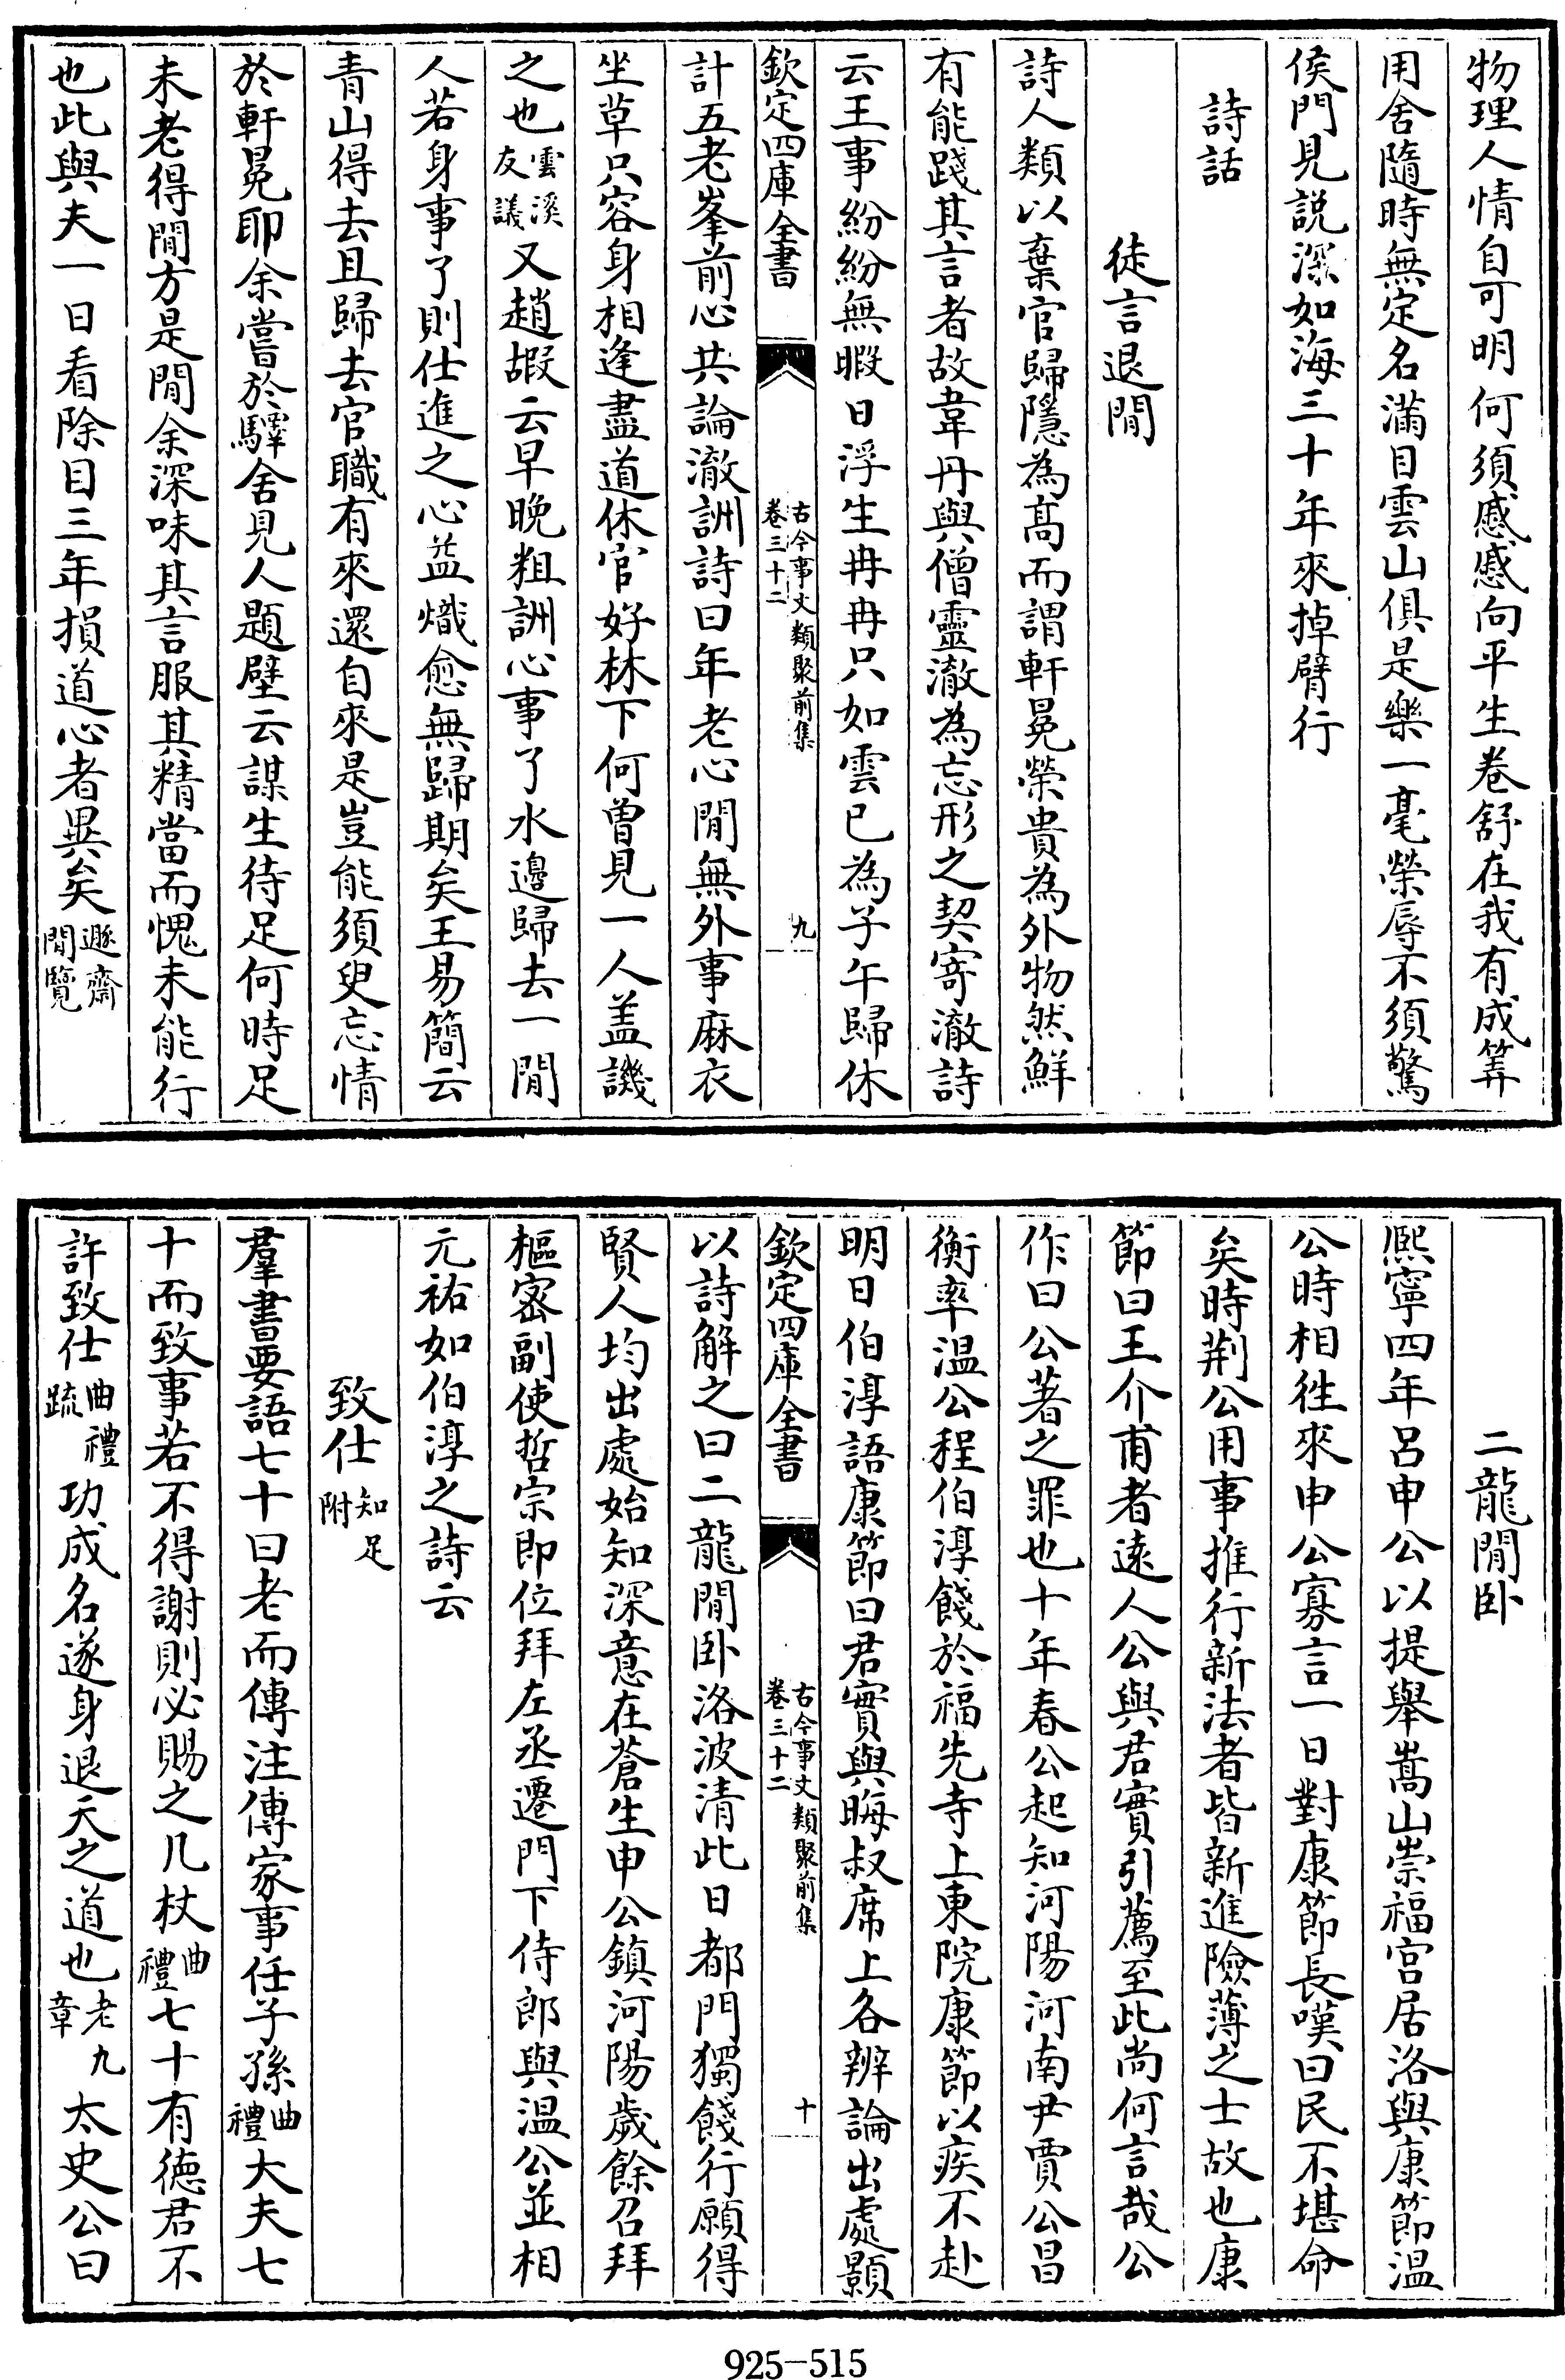 物理人情自可明何須慼慼向平生卷舒在我有成筭
用舍隨時無定名滿目雲山俱是樂一毫榮辱不須驚
侯門見説深如海三十年來掉臂行
詩話
徒言退閒
詩人類以棄官歸隱為髙而謂軒冕榮貴為外物然鮮
有能踐其言者故韋丹與僧靈澈為忘形之契寄澈詩
云王事紛紛無暇日浮生冉冉只如雲已為子午歸休
欽定四庫全書
古今事文類聚前集
卷三十二
九
計五老峯前心共論澈詶詩曰年老心閒無外事麻衣
坐草只容身相逢盡道休官好林下何曽見一人盖譏
之也雲溪友議又趙嘏云早晚粗詶心事了水邉歸去一閒
人若身事了則仕進之心益熾愈無歸期矣王易簡云
青山得去且歸去官職有來還自來是豈能須臾忘情
於軒冕耶余嘗於驛舍見人題壁云謀生待足何時足
未老得閒方是閒余深味其言服其精當而愧未能行
也此與夫一日看除目三年損道心者異矣遯齋閒覽
二龍閒卧
熈寧四年呂申公以提舉嵩山崇福宫居洛與康節温
公時相徃來申公寡言一日對康節長嘆曰民不堪命
矣時荆公用事推行新法者皆新進險薄之士故也康
節曰王介甫者逺人公與君實引薦至此尚何言哉公
作曰公著之罪也十年春公起知河陽河南尹賈公昌
衡率温公程伯淳餞於福先寺上東院康節以疾不赴
明日伯淳語康節曰君實與晦叔席上各辨論出處顥
欽定四庫全書
古今事文類聚前集
卷三十二
十
以詩解之曰二龍閒卧洛波清此日都門獨餞行願得
賢人均出處始知深意在蒼生申公鎮河陽歲餘召拜
樞宻副使哲宗即位拜左丞遷門下侍郎與温公並相
元祐如伯淳之詩云
致仕知足附
羣書要語七十曰老而傳注傳家事任子孫曲禮大夫七
十而致事若不得謝則必賜之几杖曲禮七十有徳君不
許致仕曲禮疏功成名遂身退天之道也老九章太史公曰
925-515